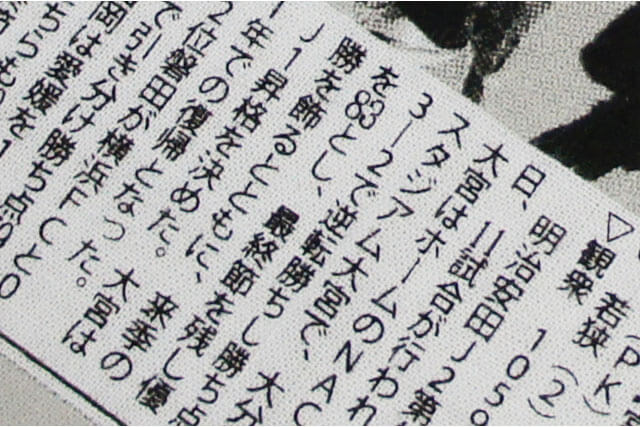 (PK)
▽
若狭(2)
観衆 1059
日、明治安田J2第
11試合が行われ
大宮はホームのNAC
スタジアム大宮で、大分
3―2で逆転勝ちし勝ち点
を83とし、最終節を残し優
勝を飾るとともに、来季の
J1昇格を決めた。大宮は
年での復帰となった。
2位磐田が横浜FCと0
で引き分け勝ち点
岡は愛媛を1